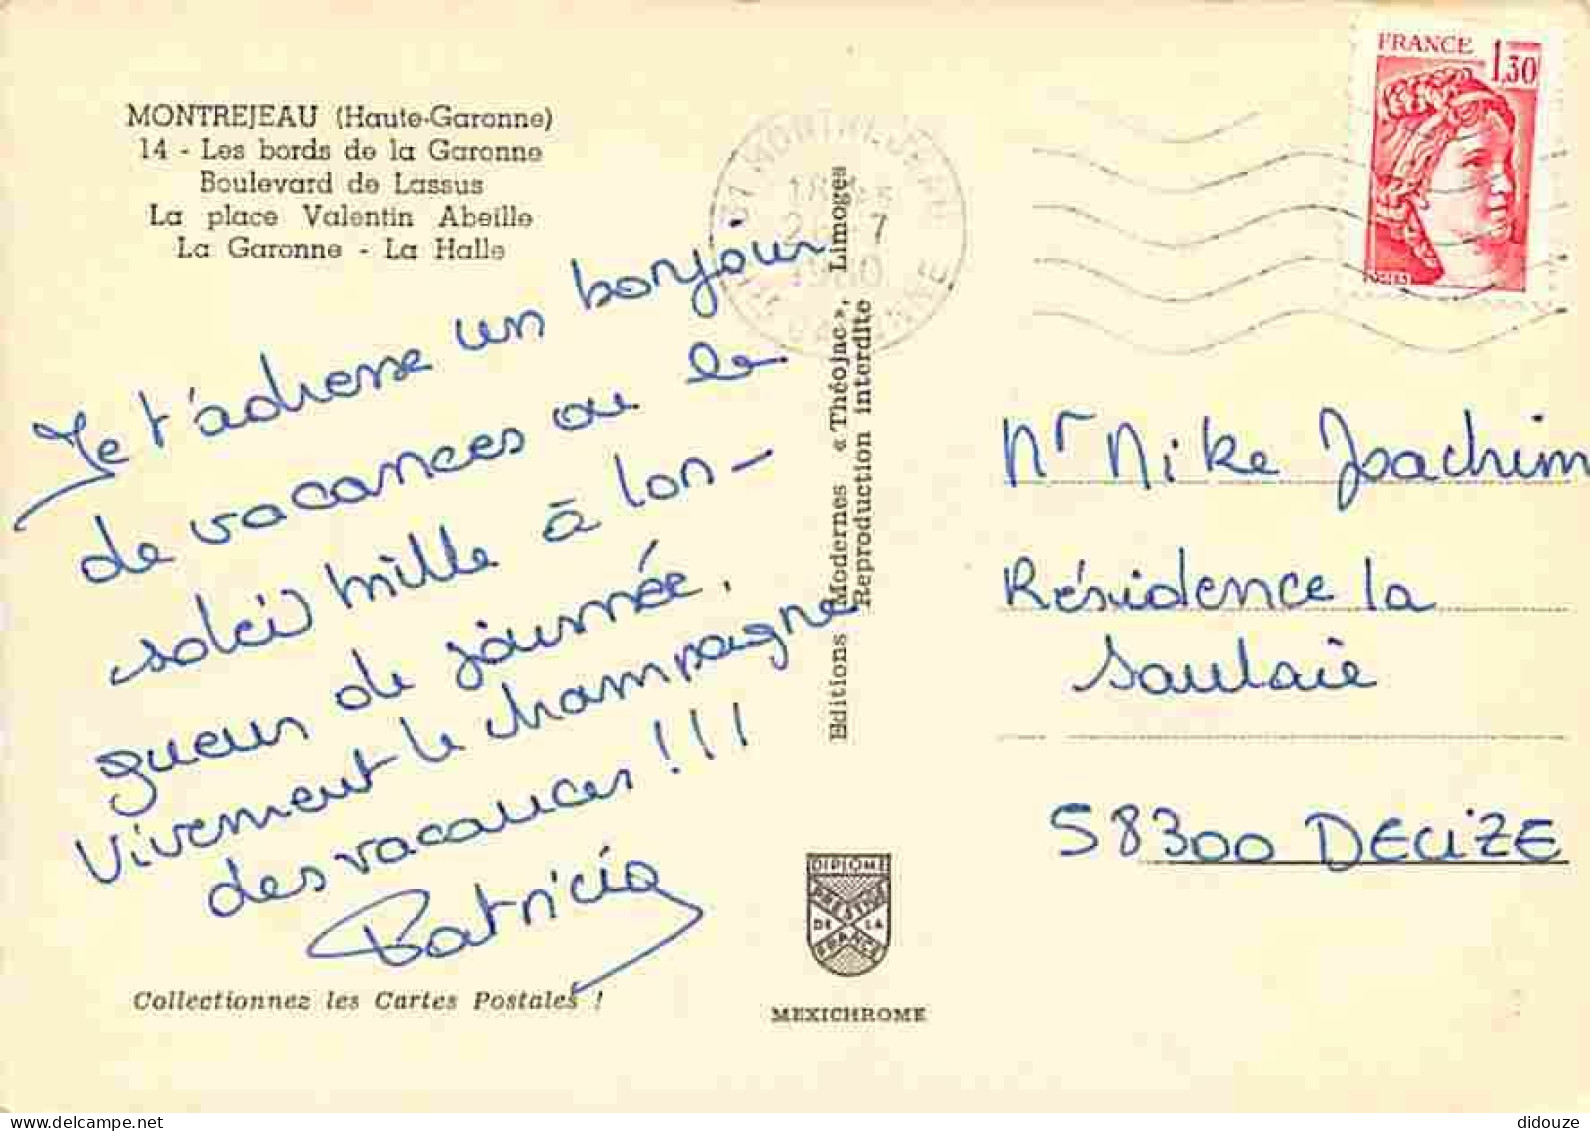 MONTREJEAU (Haute-Garonne)
14 - Les bords de la Garonne
Boulevard de Lassus
La place Valentin Abeille
La Garonne - La Halle
Je t'adresse un bonjour
de vacances ou le
soleil brille à lon-
gueur de journée.
Vivement le champagne
des vacances !!!
Patricia
Collectionnez les Cartes Postales !
Editions Modernes « Théojac », Limoges
Reproduction interdite
DIPLOME
PRESTIGE
DE LA
FRANCE
MEXICHROME
1980
FRANCE
1,30
Mr Mike Joachim
Résidence la
Saulaie
58300 DECIZE
delcampe.net
didouze